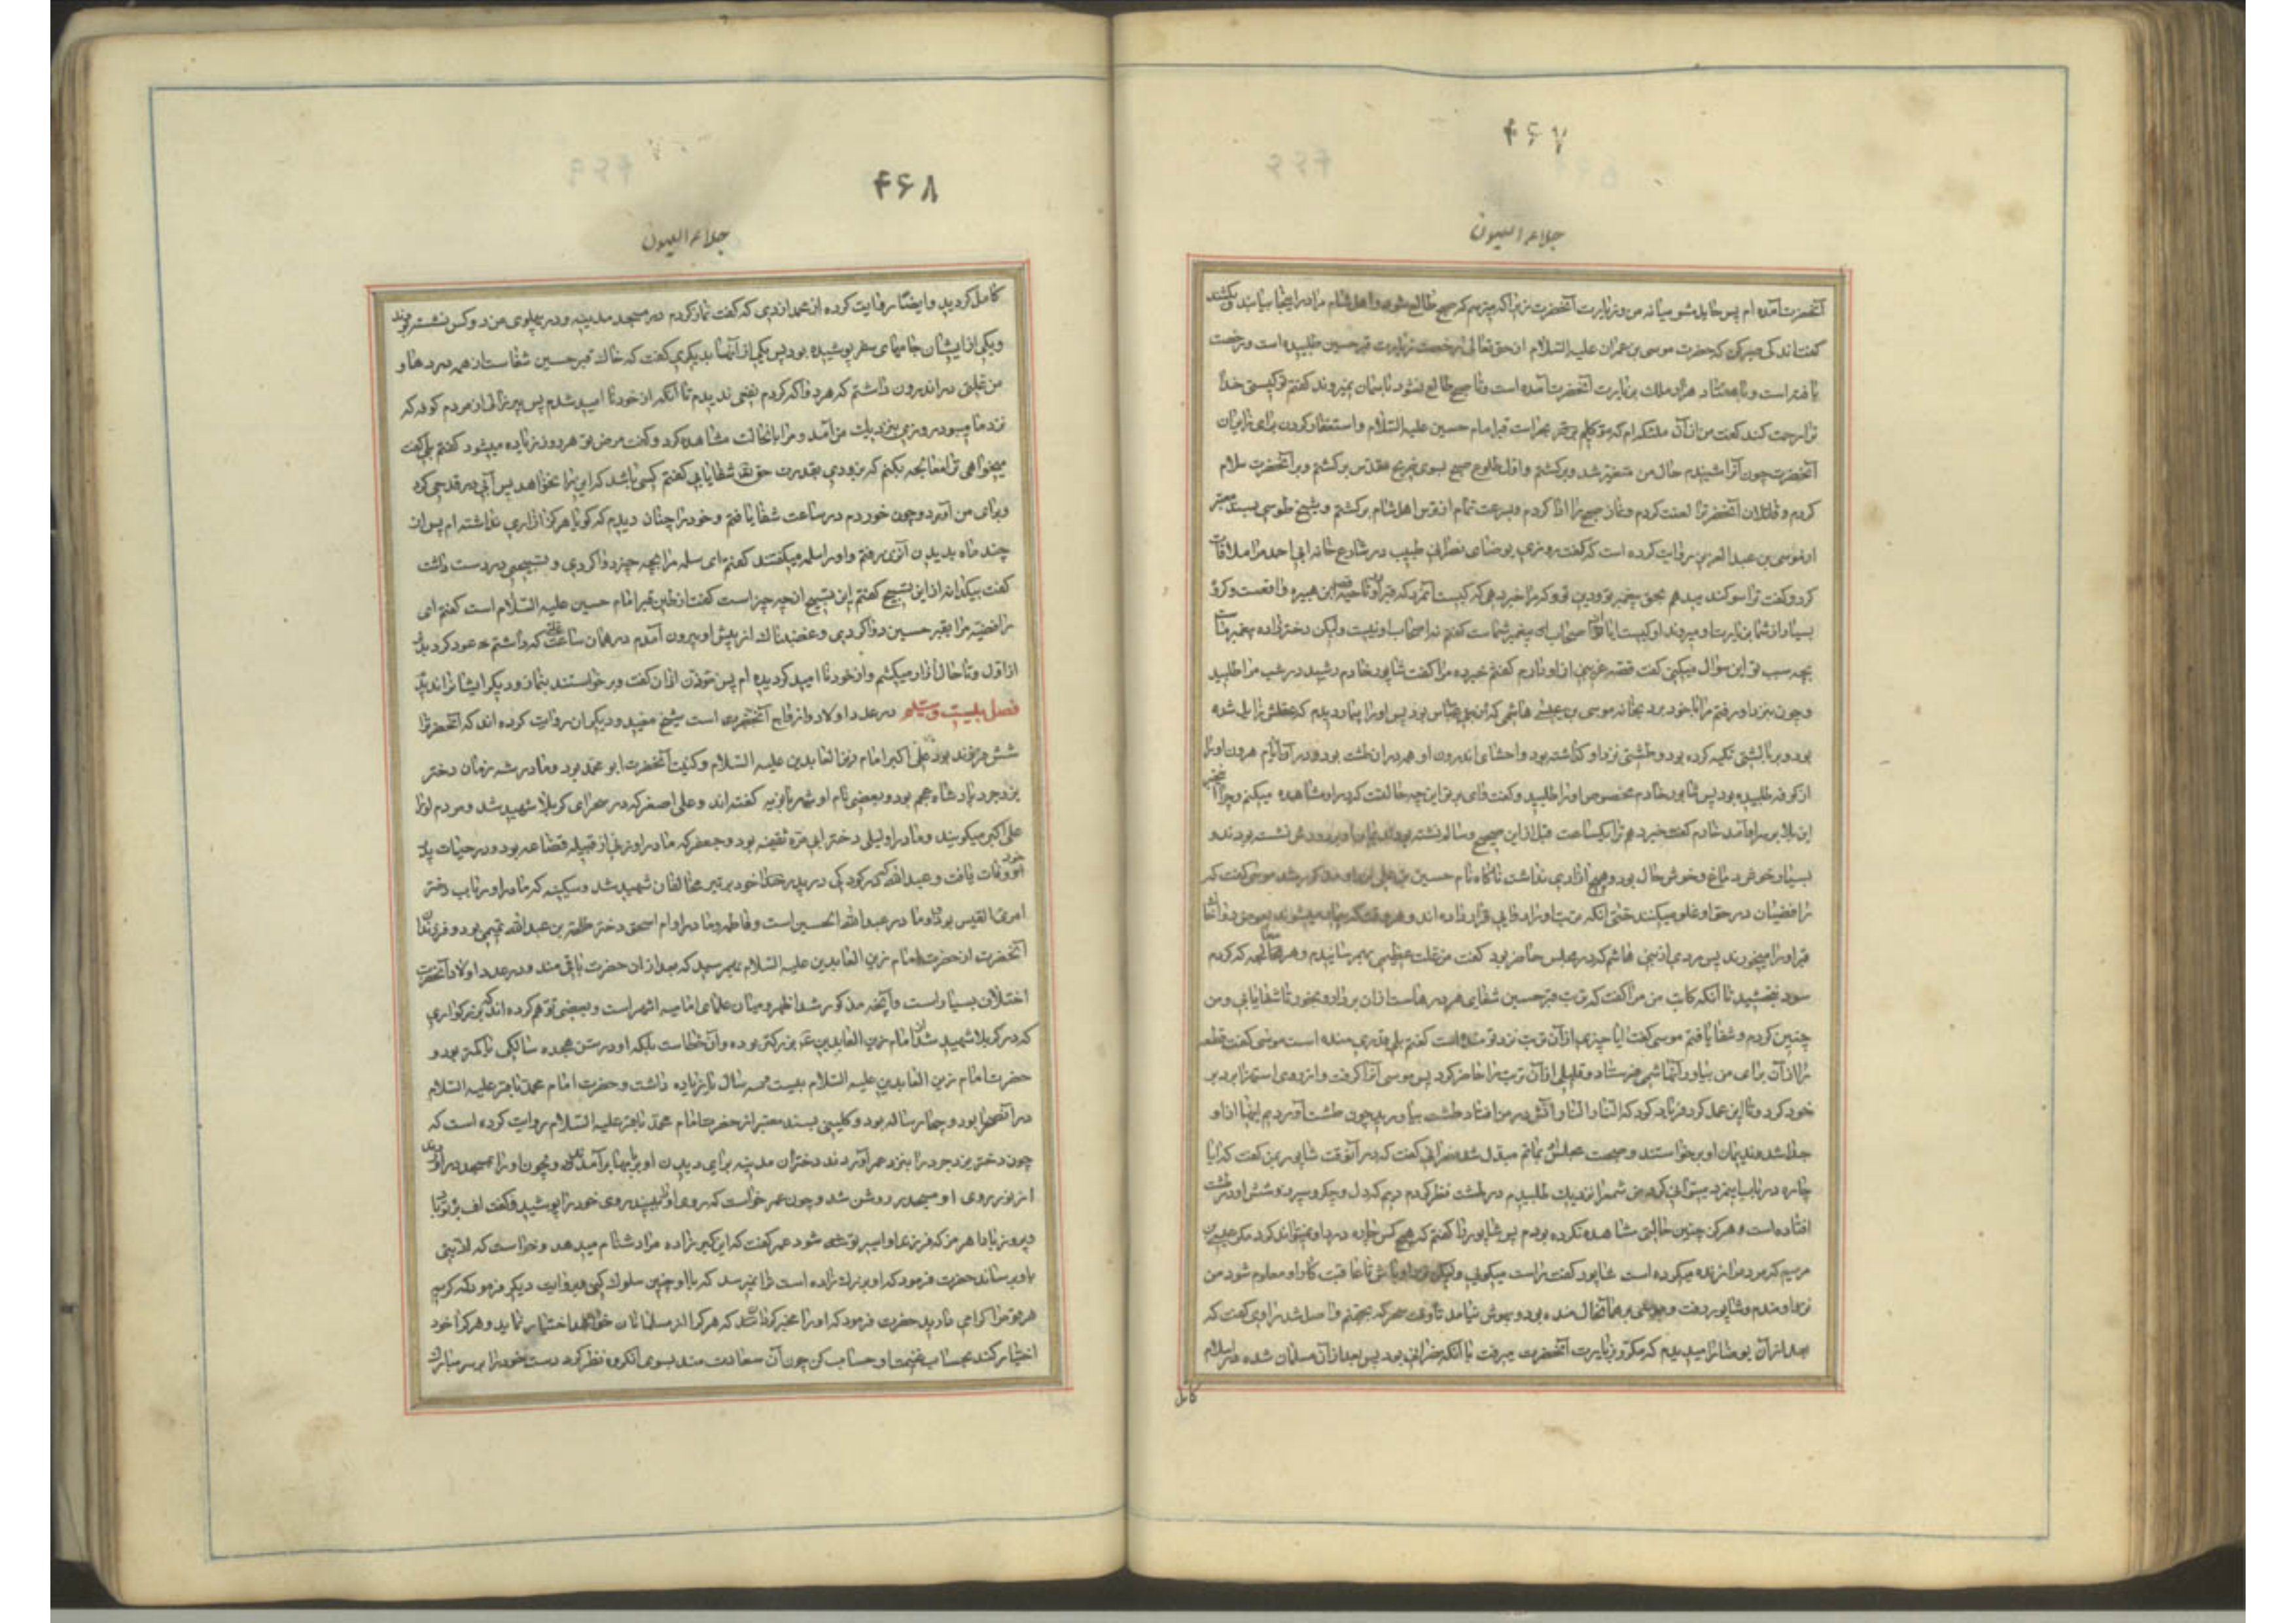 ۴۶۷
جلاء العیون
آنحضرت آمده ام پس حایل مشو میانه من و زیارت آنحضرت زیرا که میترسم که صبح طالع شود و اهل شام مرا در اینجا بیابند و بکشند
گفت اندکی صبر کن که حضرت موسی بن عمران علیه السلام از حق تعالی رخصت زیارت قبر حسین طلبیده است و رخصت
یافته است و با هفتاد هزار ملک بزیارت آنحضرت آمده است و تا صبح طالع نشود باسمان نمیروند گفتم تو کیستی خدا
ترا رحمت کند گفت من از آن ملئکه ام که موکلیم بر قبر امام حسین علیه السلام و استغفار کردن برای زایران
آنحضرت چون آنرا شنیدم حال من متغیر شد و برگشتم و اول طلوع صبح بسوی ضریح مقدس برگشتم و بر آنحضرت سلام
کردم و قاتلان آنحضرترا لعنت کردم و نماز صبح را ادا کردم و بسرعت تمام از ترس اهل شام برگشتم و شیخ طوسی بسند معتبر
از موسی بن عبد العزیز روایت کرده است که گفت روزی یوحنای نصرانی طبیب در شارع خانه ابی احمد مرا ملاقات
کرد و گفت ترا سوگند میدهم بحق پیغمبر تو و دین تو که مرا خبر دهی که کیست آنمرد که قبر او در ناحیه قصر ابن هبیره واقعست و گروه
بسیار از شما بزیارت او میروند او کیست ایا از صحابهای پیغمبر شماست گفتم نه از صحاب او نیست ولیکن دختر زاده پیغمبر ماست
بچه سبب تو این سوال میکنی گفت قصه غریبی از او دارم گفتم خبر ده مرا گفت شاپور خادم رشید در شب مرا طلبید
و چون بنزد او رفتم مرا با خود برد بخانه موسی بن عیسی هاشمی که از بنی عباس بود پس او را بیمار دیدم که عقلش زایل شده
بود و بر بالشتی تکیه کرده بود و طشتی نزد او گذاشته بود و احشای اندرون او همه در ان طشت بود و در آن ایام هرون او را
از کوفه طلبیده بود پس شاپور خادم مخصوص او را طلبید و گفت وای بر تو این چه حالتست که در او مشاهده میکنم و چرا
این بلا بر سر او آمد خادم گفت خبر دهم ترا یکساعت قبل از این صحیح و سالم نشسته بود و ندیمان او بر دورش نشسته بودند و
بسیار خوش دماغ و خوش حال بود و هیچ آزاری نداشت ناگاه نام حسین بن علی نزد او مذکور شد موسی گفت که
رافضیان در حق او غلو میکنند حتی آنکه تربت او را دوای قرار داده اند و هر وقت که بیمار میشوند بعوض دوا خاک
قبر او را میخورند پس مردی از بنی هاشم که در مجلس حاضر بود گفت من علت عظیمی بهم رسانیدم و هر معالجه که کردم
سود نبخشید تا آنکه کاتب من مرا گفت که تربت قبر حسین شفای هر درد هاست از ان بردار و بخور تا شفا یابی و من
چنین کردم و شفا یافتم موسی گفت ایا چیزی از آن تربت نزد تو مانده است گفتم بلی قدری مانده است موسی گفت قطعه
را از آن برای من بیاور آنهاشمی فرستاد و قلیلی از آن تربت را حاضر کرد پس موسی آنرا گرفت و از روی استهزا بر دبر
خود کرد و تا این عمل کرد فریاد کرد که النار النار آتش در من افتاد طشت بیاورید چون طشت آوردیم اینها از او
جدا شد و ندیمان او برخواستند و صحبت مجلس بماتم مبدل شد نصرانی گفت که در آنوقت شاپور بمن گفت که ایا
چاره در باب اینمرد میتوانی کرد من شمع را نزدیک طلبیدم و در طشت نظر کردم دیدم که دل و جگر و سپرز و شش او در طشت
افتاده است و هرگز چنین حالتی مشاهده نکرده بودم پس شاپور را گفتم که هیچ کس چاره در او نمیتواند کرد مگر عیسی بن
مریم که مرده را زنده میکرده است شاپور گفت راست میگوئی ولیکن نزد او باش تا عاقبت کار او معلوم شود من
نزد او ماندم و شاپور رفت و موسی بر همان حال مانده بود و بهوش نیامد تا وقت سحر که بجهنم واصل شد راوی گفت که
بعد از آن یوحنا را میدیدم که مکرر بزیارت آنحضرت میرفت با آنکه نصرانی بود پس بعد از آن مسلمان شد و در اسلام
کامل
۴۶۸
جلاء العیون
کامل گردید و ایضا روایت کرده از محمد ازدی که گفت نماز کردم در مسجد مدینه و در پهلوی من دو کس نشسته بودند
و یکی از ایشان جامهای سفر پوشیده بود پس یکی از آنها بدیگری گفت که خاک قبر حسین شفاست از همه دردها و
من علتی در اندرون داشتم که هر دوا که کردم نفعی ندیدم تا آنکه از خود نا امید شدم پس پیر زالی از مردم کوفه که
نزد ما میبود روزی بنزدیک من آمد و مرا باینحالت مشاهده کرد و گفت مرض تو هر روز زیاده میشود گفتم بلی گفت
میخواهی ترا معالجه بکنم که بزودی بقدرت حق تعالی شفا یابی گفتم کسی باشد که این را نخواهد پس آبی در قدحی کرد
و برای من آورد و چون خوردم در ساعت شفا یافتم و خود را چنان دیدم که گویا هرگز ازاری نداشته ام پس از
چند ماه بدیدن آنزن رفتم و او را سلمه میگفتند گفتم ای سلمه مرا بچه چیز دوا کردی و تسبیحی در دست داشت
گفت بیکدانه از این تسبیح گفتم این تسبیح از چه چیز است گفت از طین قبر امام حسین علیه السلام است گفتم ای
رافضیه مرا بقبر حسین دوا کردی و غضبناک از پیش او بیرون آمدم در همان ساعت علتی که داشتم عود کرد بدتر
از اول و تا حال ازار میکشم و از خود نا امید گردیده ام پس موذن اذان گفت و برخواستند بنماز و دیگر ایشانرا ندیدم
فصل بیست و سیم در عدد اولاد و ازواج آنحضرت است شیخ مفید و دیگران روایت کرده اند که آنحضرترا
شش فرزند بود علی اکبر امام زین العابدین علیه السلام و کنیت آنحضرت ابو محمد بود و مادرش شه زنان دختر
یزدجرد پادشاه عجم بود و بعضی نام او شهربانویه گفته اند و علی اصغر که در صحرای کربلا شهید شد و مردم او را
علی اکبر میگویند و مادر او لیلی دختر ابی مره ثقفیه بود و جعفر که مادر او زنی از قبیله قضاعه بود و در حیات پدر
خود وفات یافت و عبد الله که در کودکی در پیش پدر خود بر تیر مخالفان شهید شد و سکینه که مادر او رباب دختر
امرئ القیس بود و او مادر عبد الله بن الحسین است و فاطمه و مادر او ام اسحق دختر طلحه بن عبد الله تیمی بود و فرزندان
آنحضرت از حضرت امام زین العابدین علیه السلام بهمرسید که بعد از ان حضرت باقی ماند و در عدد اولاد آنحضرت
اختلاف بسیار است و آنچه مذکور شد اظهر و میان علمای امامیه اشهر است و بعضی توهم کرده اند که بزرگواری
که در کربلا شهید شد از امام زین العابدین ع بزرگتر بوده و آن خطاست بلکه او در سن هجده سالگی یا کمتر بود و
حضرت امام زین العابدین علیه السلام بیست و سه سال یا زیاده داشت و حضرت امام محمد باقر علیه السلام
در آنصحرا بود و چهار ساله بود و کلینی بسند معتبر از حضرت امام محمد باقر علیه السلام روایت کرده است که
چون دختر یزدجرد را بنزد عمر آوردند دختران مدینه برای دیدن او ببامها برآمدند و چون او را بمسجد در آوردند
از نور روی او مسجد روشن شد و چون عمر خواست که روی او ببیند روی خود را پوشید و گفت اف
پیروز بادا هرمز که فرزند او اسیر تو شود عمر گفت که این گبر زاده مرا دشنام میدهد و خواست که اذیتی
باو برساند حضرت فرمود که او بزرگ زاده است ترا نمیرسد که با او چنین سلوک کنی و بروایت دیگر فرمود که کریم
هر قوم را گرامی دارید حضرت فرمود که او را مخیر گردان که هر که از مسلمانان خواهد اختیار نماید و هر که را خود
اختیار کند بحساب غنیمت او حساب کن چون آن سعادت مند بسوی آنگروه نظر کرد دست خود را بر سر مبارک